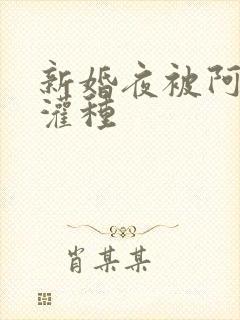 新婚夜被阿
灌種
肖某某